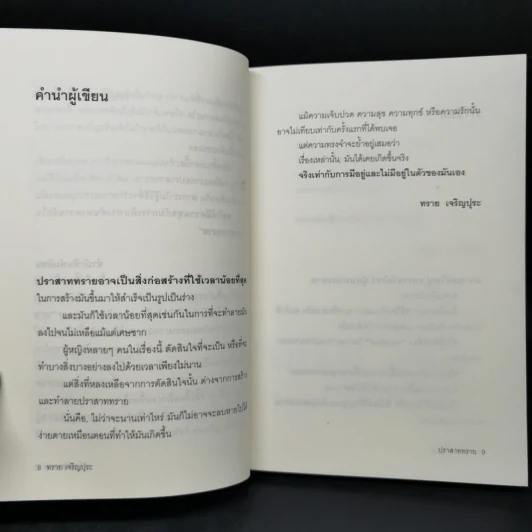 คำนำผู้เขียน
ปราสาททรายอาจเป็นสิ่งก่อสร้างที่ใช้เวลาน้อยที่สุด
ในการสร้างมันขึ้นมาให้สำเร็จเป็นรูปเป็นร่าง
และมันก็ใช้เวลาน้อยที่สุดเช่นกันในการที่จะทำลายมัน
ลงไปจนไม่เหลือแม้แต่เศษซาก
ผู้หญิงหลายๆ คนในเรื่องนี้ ตัดสินใจที่จะเป็น หรือที่จะ
ทำบางสิ่งบางอย่างลงไปด้วยเวลาเพียงไม่นาน
แต่สิ่งที่หลงเหลือจากการตัดสินใจนั้น ต่างจากการสร้าง
และทำลายปราสาททราย
นั่นคือ, ไม่ว่าจะนานเท่าไหร่ มันก็ไม่อาจจะลบหายไปได้
ง่ายดายเหมือนตอนที่ทำให้มันเกิดขึ้น
8 ทราย เจริญปุระ
แม้ความเจ็บปวด ความสุข ความทุกข์ หรือความรักนั้น
อาจไม่เทียบเท่ากับครั้งแรกที่ได้พบเจอ
แต่ความทรงจำจะย้ำอยู่เสมอว่า
เรื่องเหล่านั้น, มันได้เคยเกิดขึ้นจริง
จริงเท่ากับการมีอยู่และไม่มีอยู่ในตัวของมันเอง
ทราย เจริญปุระ
ปราสาททราย 9